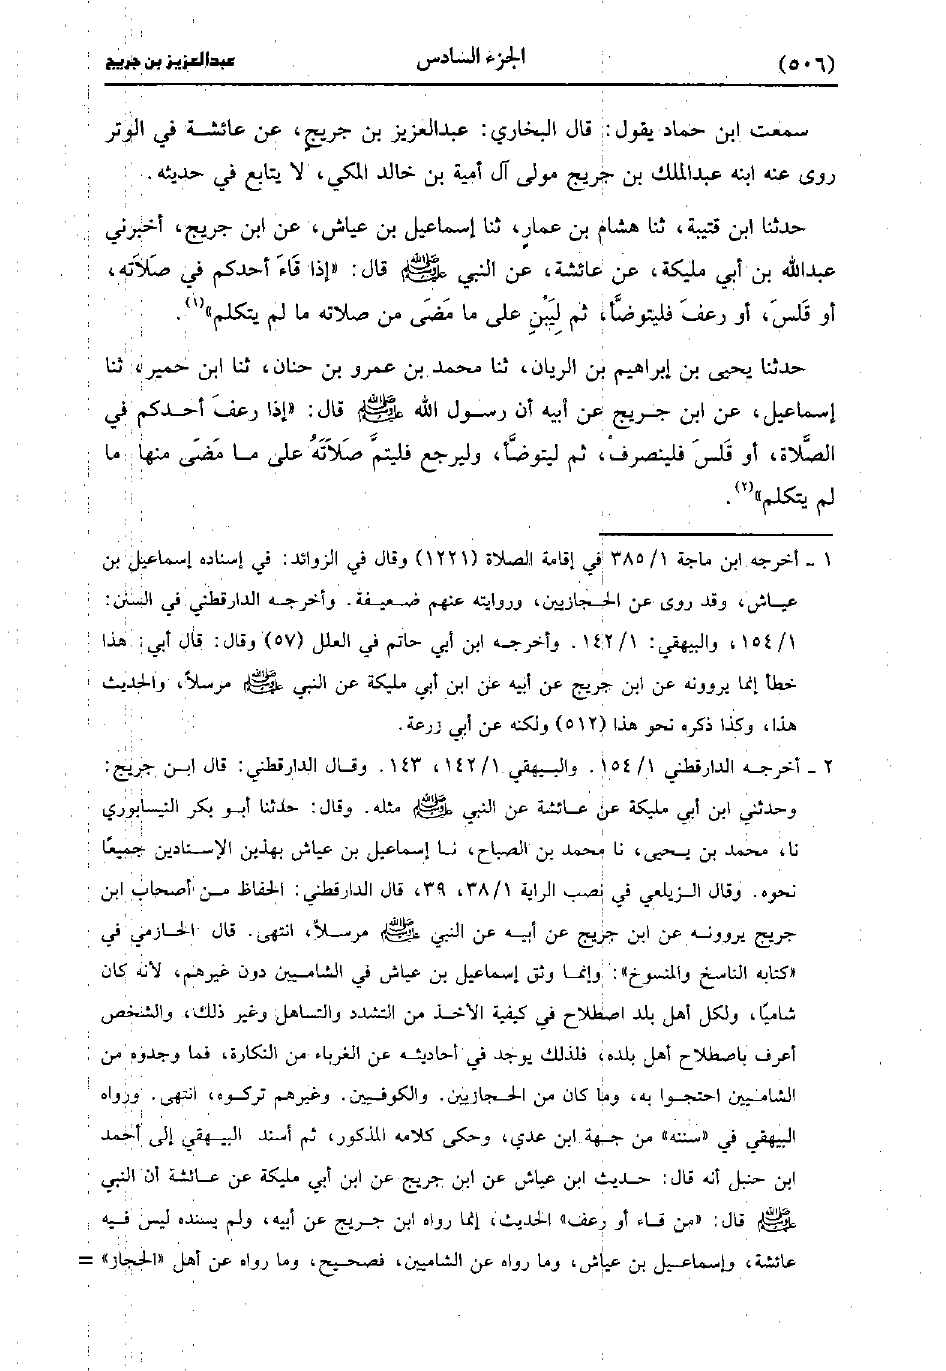 (٥٠٦) الجزء السادس عبدالعزيز بن جريج
سمعت ابن حماد يقول: قال البخاري: عبدالعزيز بن جريج، عن عائشة في الوتر
روى عنه ابنه عبدالملك بن جريج مولى آل أمية بن خالد المكي، لا يتابع في حديثه.
حدثنا ابن قتيبة، ثنا هشام بن عمار، ثنا إسماعيل بن عياش، عن ابن جريج، أخبرني
عبدالله بن أبي مليكة، عن عائشة، عن النبي ﷺ قال: «إذا قَاءَ أحدكم في صَلَاته،
أو قَلسَ، أو رعفَ فليتوضَّأ، ثم لِيَبْنِ على ما مَضَى من صلاته ما لم يتكلم»(١).
حدثنا يحيى بن إبراهيم بن الريان، ثنا محمد بن عمرو بن حنان، ثنا ابن حمير، ثنا
إسماعيل، عن ابن جريج عن أبيه أن رسول الله ﷺ قال: «إذا رعفَ أحدكم في
الصَّلاة، أو قَلسَ فلينصرفْ، ثم ليتوضَّأ، وليرجع فليتمَّ صَلَاتَهُ على ما مَضَى منها ما
لم يتكلم»(٢).
١ ـ أخرجه ابن ماجة ١/ ٣٨٥ في إقامة الصلاة (١٢٢١) وقال في الزوائد: في إسناده إسماعيل بن
عياش، وقد روى عن الحجازيين، وروايته عنهم ضعيفة. وأخرجه الدارقطني في السنن:
١/ ١٥٤، والبيهقي: ١/ ١٤٢. وأخرجه ابن أبي حاتم في العلل (٥٧) وقال: قال أبي: هذا
خطأ إنما يروونه عن ابن جريج عن أبيه عن ابن أبي مليكة عن النبي ﷺ مرسلاً، والحديث
هذا، وكذا ذكره نحو هذا (٥١٢) ولكنه عن أبي زرعة.
٢ ـ أخرجه الدارقطني ١/ ١٥٤. والبيهقي ١/ ١٤٢، ١٤٣. وقال الدارقطني: قال ابن جريج:
وحدثني ابن أبي مليكة عن عائشة عن النبي ﷺ مثله. وقال: حدثنا أبو بكر النيسابوري
نا، محمد بن يحيى، نا محمد بن الصباح، نا إسماعيل بن عياش بهذين الإسنادين جميعًا
نحوه. وقال الزيلعي في نصب الراية ١/ ٣٨، ٣٩، قال الدارقطني: الحفاظ من أصحاب ابن
جريج يروونه عن ابن جريج عن أبيه عن النبي ﷺ مرسلاً، انتهى. قال الحازمي في
«كتابه الناسخ والمنسوخ»: وإنما وثق إسماعيل بن عياش في الشاميين دون غيرهم، لأنه كان
شاميًا، ولكل أهل بلد اصطلاح في كيفية الأخذ من التشدد والتساهل وغير ذلك، والشخص
أعرف باصطلاح أهل بلده، فلذلك يوجد في أحاديثه عن الغرباء من النكارة، فما وجدوه من
الشاميين احتجوا به، وما كان من الحجازيين. والكوفيين. وغيرهم تركوه، انتهى. ورواه
البيهقي في «سننه» من جهة ابن عدي، وحكى كلامه المذكور، ثم أسند البيهقي إلى أحمد
ابن حنبل أنه قال: حديث ابن عياش عن ابن جريج عن ابن أبي مليكة عن عائشة أن النبي
ﷺ قال: «من قاء أو رعف» الحديث، إنما رواه ابن جريج عن أبيه، ولم يسنده ليس فيه
عائشة، وإسماعيل بن عياش، وما رواه عن الشاميين، فصحيح، وما رواه عن أهل «الحجاز» =